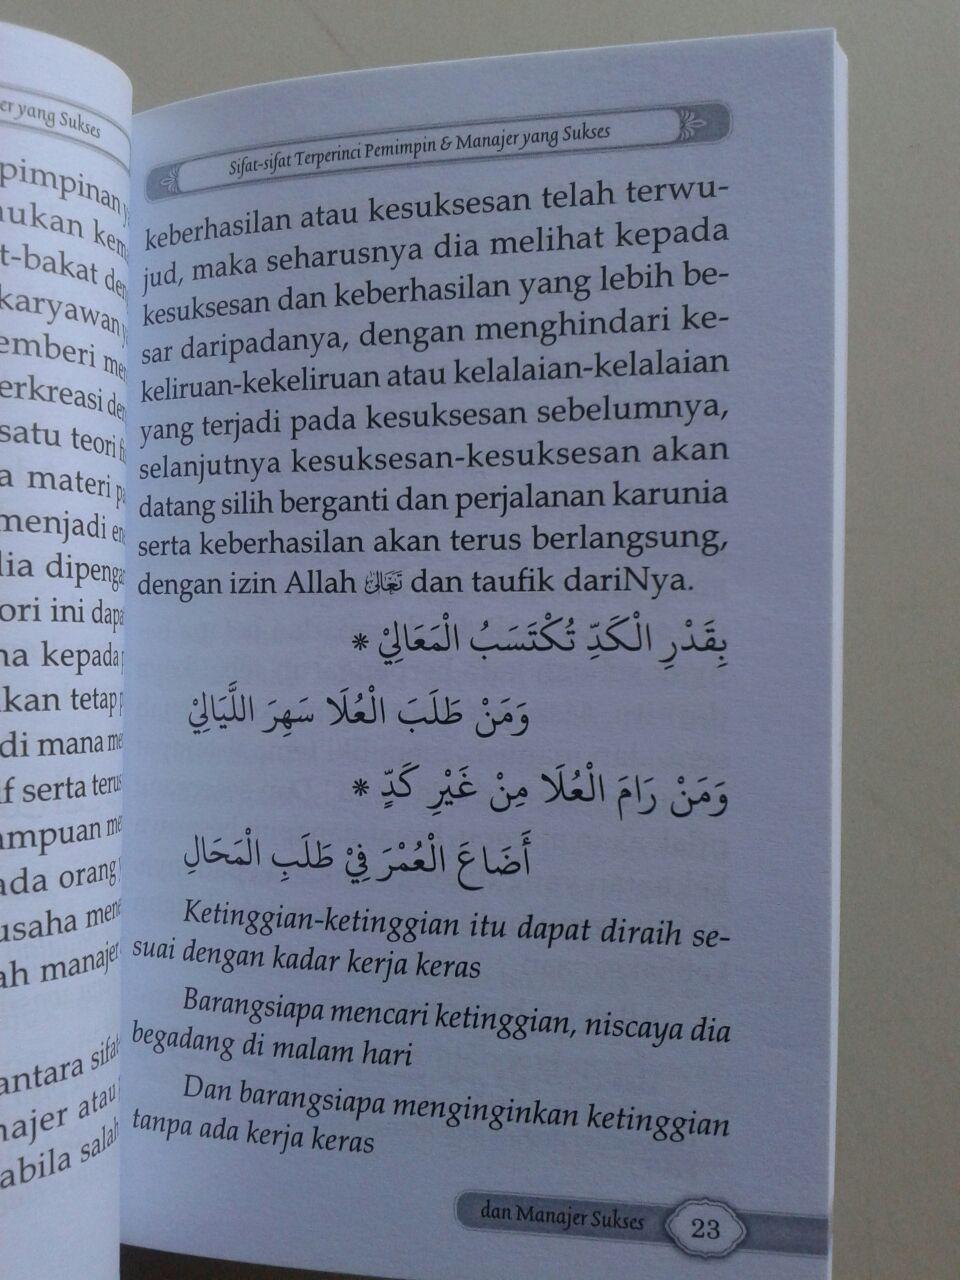 er yang Sukses
pimpinan
ukan kem
t-bakat den
karyawan
emberi men
erkreasi den
satu teori
a materi
menjadi
lia dipenga
ori ini dapa
na kepada
kan tetap
di mana me
if serta terus
ampuan me
ada orang
usaha mene
ah manajer
antara sifat
najer atau
abila salah
Sifat-sifat Terperinci Pemimpin & Manajer yang Sukses
keberhasilan atau kesuksesan telah terwu-
jud, maka seharusnya dia melihat kepada
kesuksesan dan keberhasilan yang lebih be-
sar daripadanya, dengan menghindari ke-
keliruan-kekeliruan atau kelalaian-kelalaian
yang terjadi pada kesuksesan sebelumnya,
selanjutnya kesuksesan-kesuksesan akan
datang silih berganti dan perjalanan karunia
serta keberhasilan akan terus berlangsung,
dengan izin Allah تَعَالَى dan taufik dariNya.
بِقَدْرِ الْكَدِّ تُكْتَسَبُ الْمَعَالِيْ *
وَمَنْ طَلَبَ الْعُلَا سَهِرَ اللَّيَالِيْ
وَمَنْ رَامَ الْعُلَا مِنْ غَيْرِ كَدٍّ *
أَضَاعَ الْعُمْرَ فِيْ طَلَبِ الْمَحَالِ
Ketinggian-ketinggian itu dapat diraih se-
suai dengan kadar kerja keras
Barangsiapa mencari ketinggian, niscaya dia
begadang di malam hari
Dan barangsiapa menginginkan ketinggian
tanpa ada kerja keras
dan Manajer Sukses 23